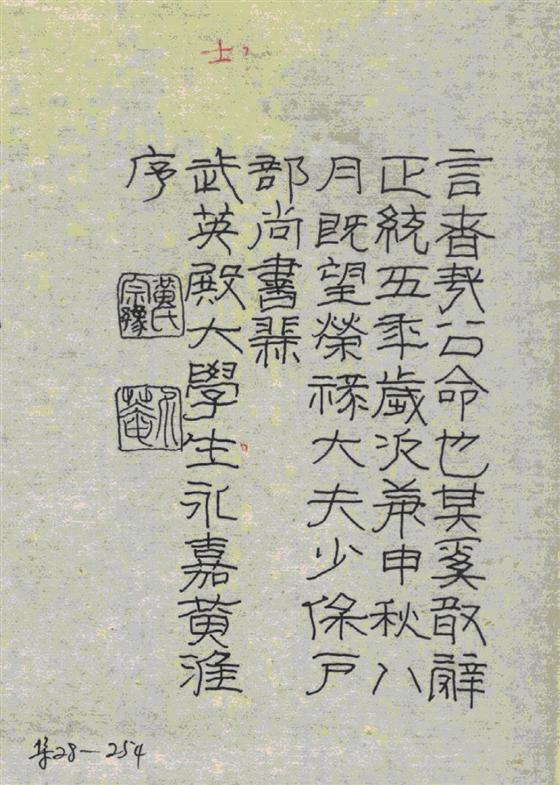 士
言者哉公命也其奚敢辭
正統五年歲次庚申秋八
月既望榮祿大夫少保戶
部尚書兼
武英殿大學生永嘉黃淮
序
黃氏
宗豫
介菴
集28—254